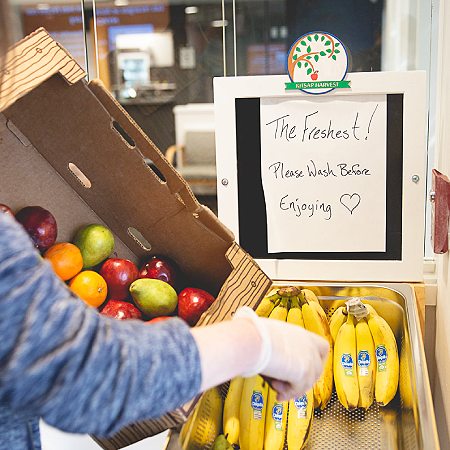 KITSAP HARVEST
The Freshest!
Please Wash Before
Enjoying ♡